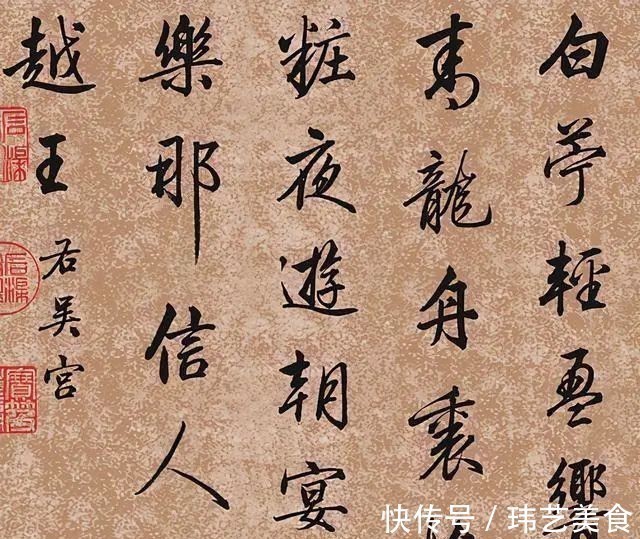 白苧輕盈
青龍舟裏
粧夜遊朝宴
樂那信人
越王
右吳宮
快传号/玮艺美食